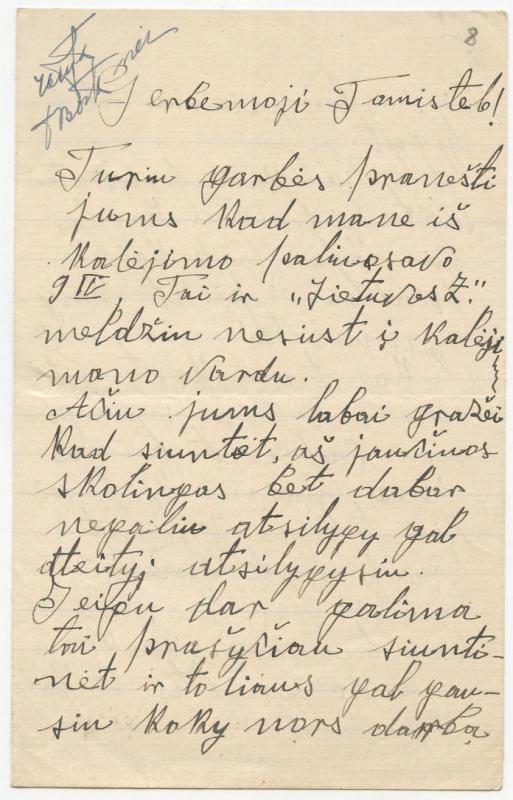 8
Gerbemoji Tamisteb!
Turiu garbės pranešti
jums kad mane iš
kalėjimo paliuosavo
9 IV. Tai ir „Lietuvos Ž."
meldžiu nesiust į kalėji
mano vardu.
Ačiu jums labai gražei
kad siuntėt, aš jaučiuos
skolingas bet dabar
negaliu atsilygy gal
ateityj atsilygysiu.
Jeigu dar galima
tai prašyčiau siunti-
nėt ir toliaus gal gau-
siu koky nors darbą